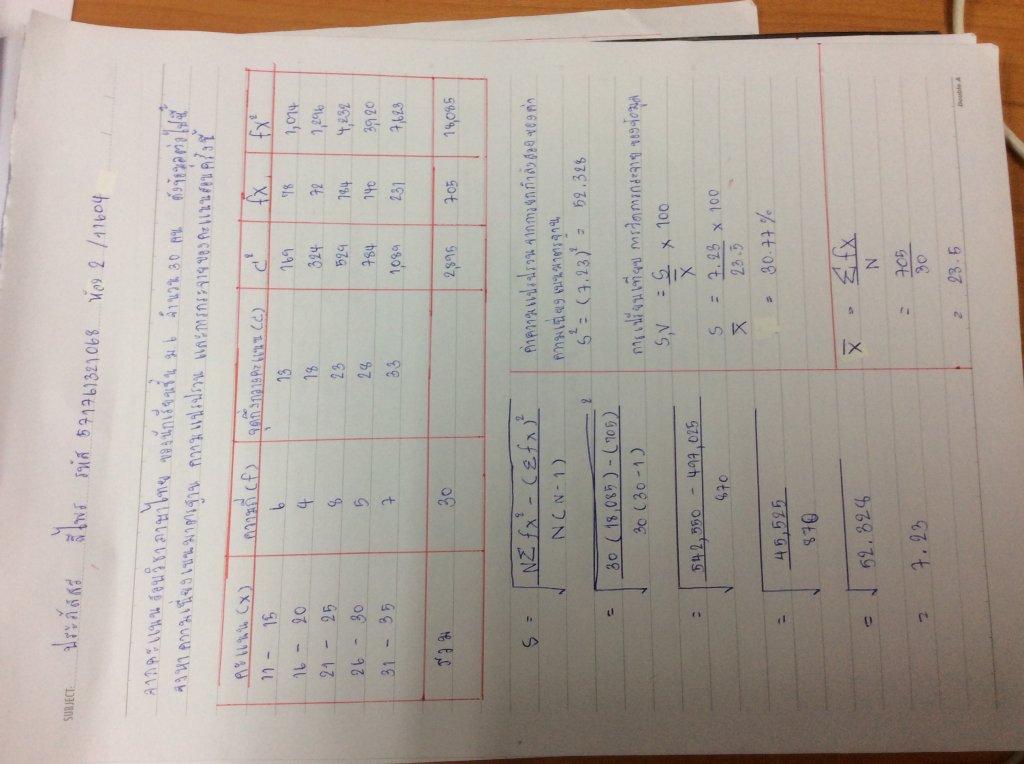 SUBJECT: ประภัสสร สีไพร รหัส 57176132106๘ ห้อง 2/11604
จากคะแนนสอบวิชาภาษาไทย ของนักเรียนชั้น ม.6 จำนวน 30 คน ดังข้อมูลต่อไปนี้
จงหาความเบี่ยงเบนมาตรฐาน ความแปรปรวน และการกระจายของคะแนนสอบครั้งนี้
คะแนน (x) ความถี่ (f) จุดกึ่งกลางคะแนน (c) c² fx fx²
11 - 15 6 13 169 78 1,014
16 - 20 4 18 324 72 1,296
21 - 25 8 23 529 184 4,232
26 - 30 5 28 784 140 3,920
31 - 35 7 33 1,089 231 7,623
รวม 30 2,895 705 18,085
S = √ N∑fx² - (∑fx)²
N (N - 1)
= √ 30 (18,085) - (705)²
30 (30 - 1)
= √ 542,550 - 497,025
870
= √ 45,525
870
= √ 52.328
= 7.23
ค่าความแปรปรวน จากการยกกำลังสองของค่า
ความเบี่ยงเบนมาตรฐาน
S² = (7.23)² = 52.328
การเปรียบเทียบ การวัดการกระจาย ของข้อมูล
S.V = S/X̄ × 100
S/X̄ = 7.23/23.5 × 100
= 30.77%
X̄ = ∑fx/N
= 705/30
= 23.5
Double A